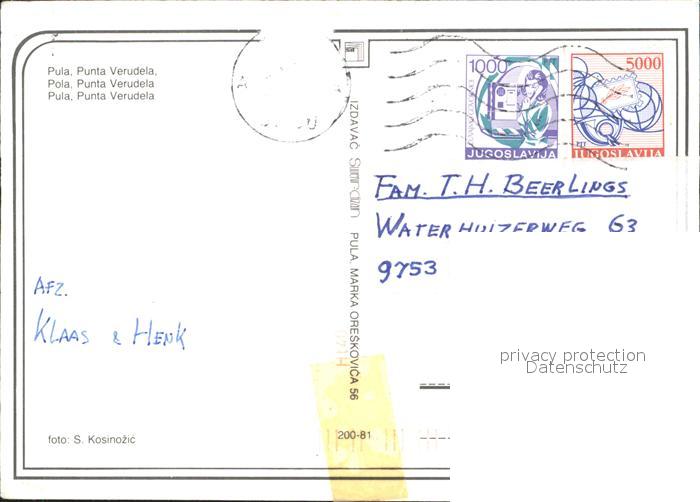 Pula, Punta Verudela,
Pola, Punta Verudela
Pula, Punta Verudela
1000
JUGOSLAVIJA
5000
PTT
JUGOSLAVIJA
IZDAVAČ
PULA, MARKA OREŠKOVIĆA 56
FAM. T.H. BEERLINGS
WATERHUIZERWEG 63
9753
AFZ.
KLAAS & HENK
privacy protection
Datenschutz
foto: S. Kosinožić
200-81